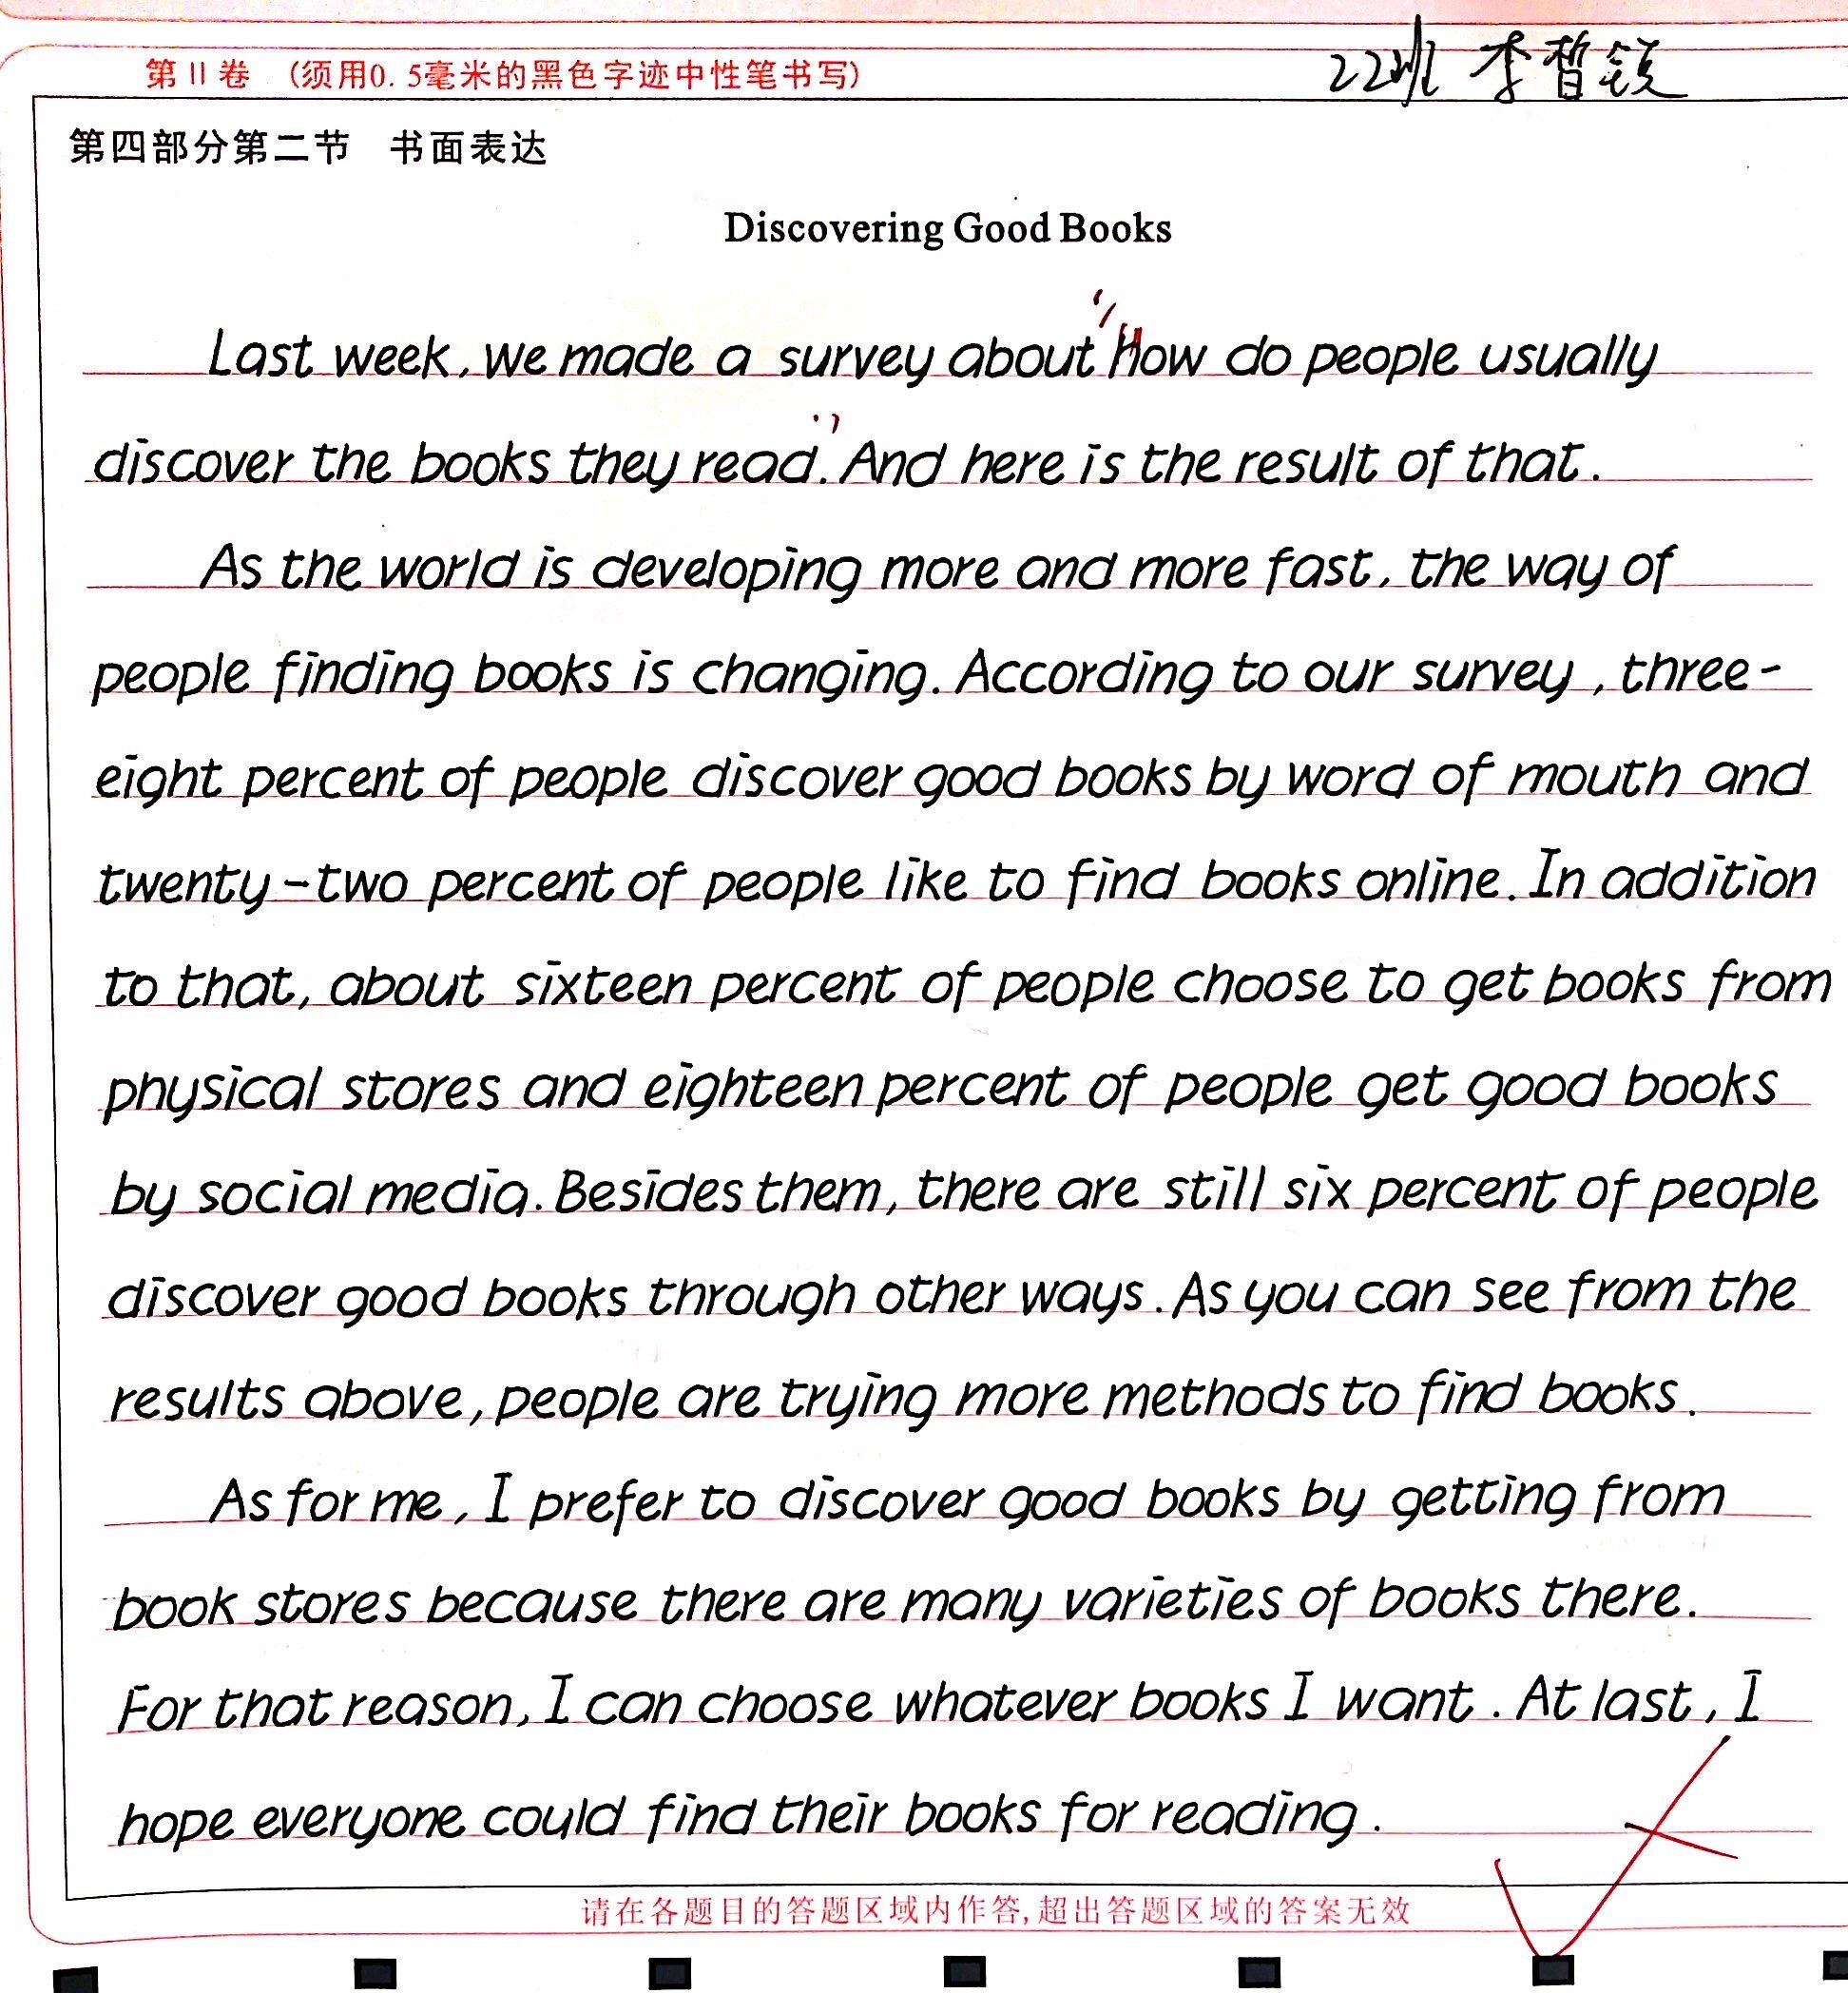 22班 李哲锐
第II卷 (须用0.5毫米的黑色字迹中性笔书写)
第四部分第二节 书面表达
Discovering Good Books
Last week, we made a survey about "How do people usually
discover the books they read." And here is the result of that.
As the world is developing more and more fast, the way of
people finding books is changing. According to our survey, three-
eight percent of people discover good books by word of mouth and
twenty-two percent of people like to find books online. In addition
to that, about sixteen percent of people choose to get books from
physical stores and eighteen percent of people get good books
by social media. Besides them, there are still six percent of people
discover good books through other ways. As you can see from the
results above, people are trying more methods to find books.
As for me, I prefer to discover good books by getting from
book stores because there are many varieties of books there.
For that reason, I can choose whatever books I want. At last, I
hope everyone could find their books for reading.
请在各题目的答题区域内作答,超出答题区域的答案无效